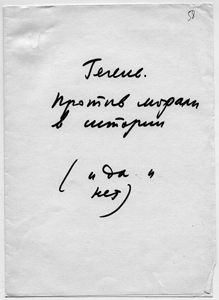 58
Гегель.
Против морали
в истории
("да"
нет)